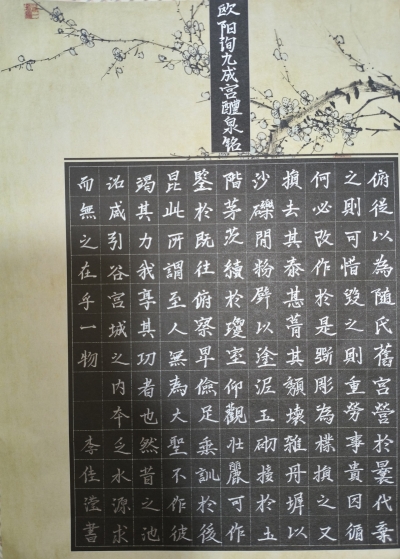 欧阳询九成宫醴泉铭
俯從以為隨氏舊宮營於曩代棄
之則可惜毀之則重勞事貴因循
何必改作於是斲彫為樸損之又
損去其泰甚葺其頹壞雜丹墀以
沙礫間粉壁以塗泥玉砌接於土
階茅茨續於瓊室仰觀壯麗可作
鑒於既往俯察卑儉足垂訓於後
昆此所謂至人無為大聖不作彼
竭其力我享其功者也然昔之池
沼咸引谷宮城之內本乏水源求
而無之在乎一物 李佳滢書